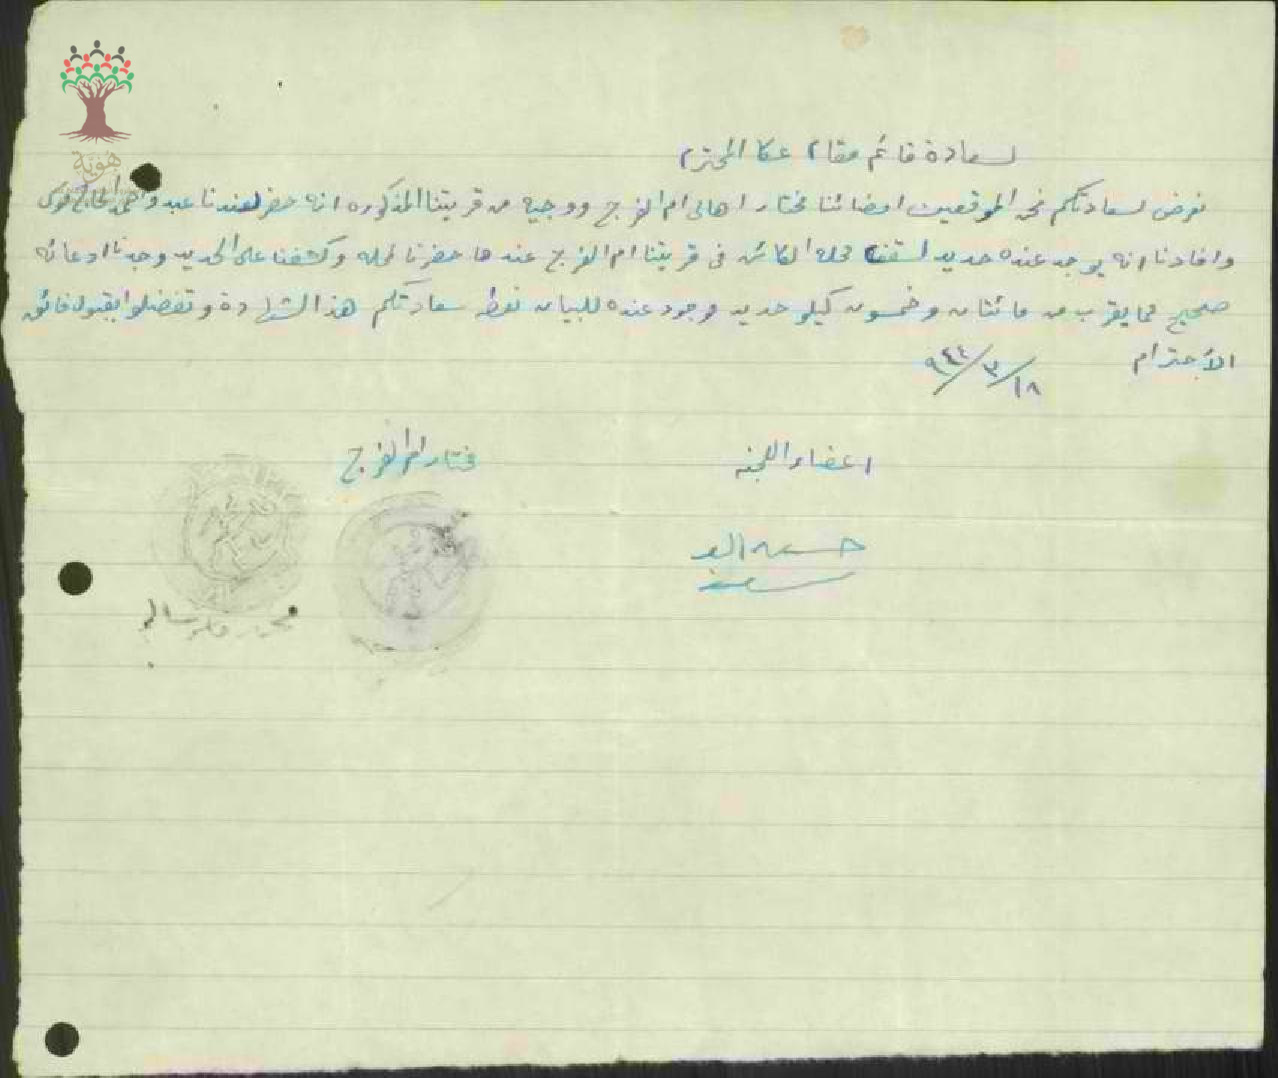 هوية
لسعادة قائم مقام عكا المحترم
نعرض لسعادتكم نحن الموقعين امضائنا مختار اهالي ام الفرج ووجيه من قريتنا المذكوره انه حضر لعندنا عبد الحاج موسى
وافادنا انه يوجد عنده حديد لسقف محله الكائن في قريتنا ام الفرج عندها حضرنا لمحله وكشفنا على الحديد وجدنا ادعائه
صحيح فما يقرب من مائتان وخمسون كيلو حديد موجود عنده للبيان نعطي سعادتكم هذا الشهادة وتفضلوا بقبول فائق
الأحترام ١٨/٣/٩٤٤
اعضاء اللجنه
مختار ام الفرج
حسين
محمد سالم